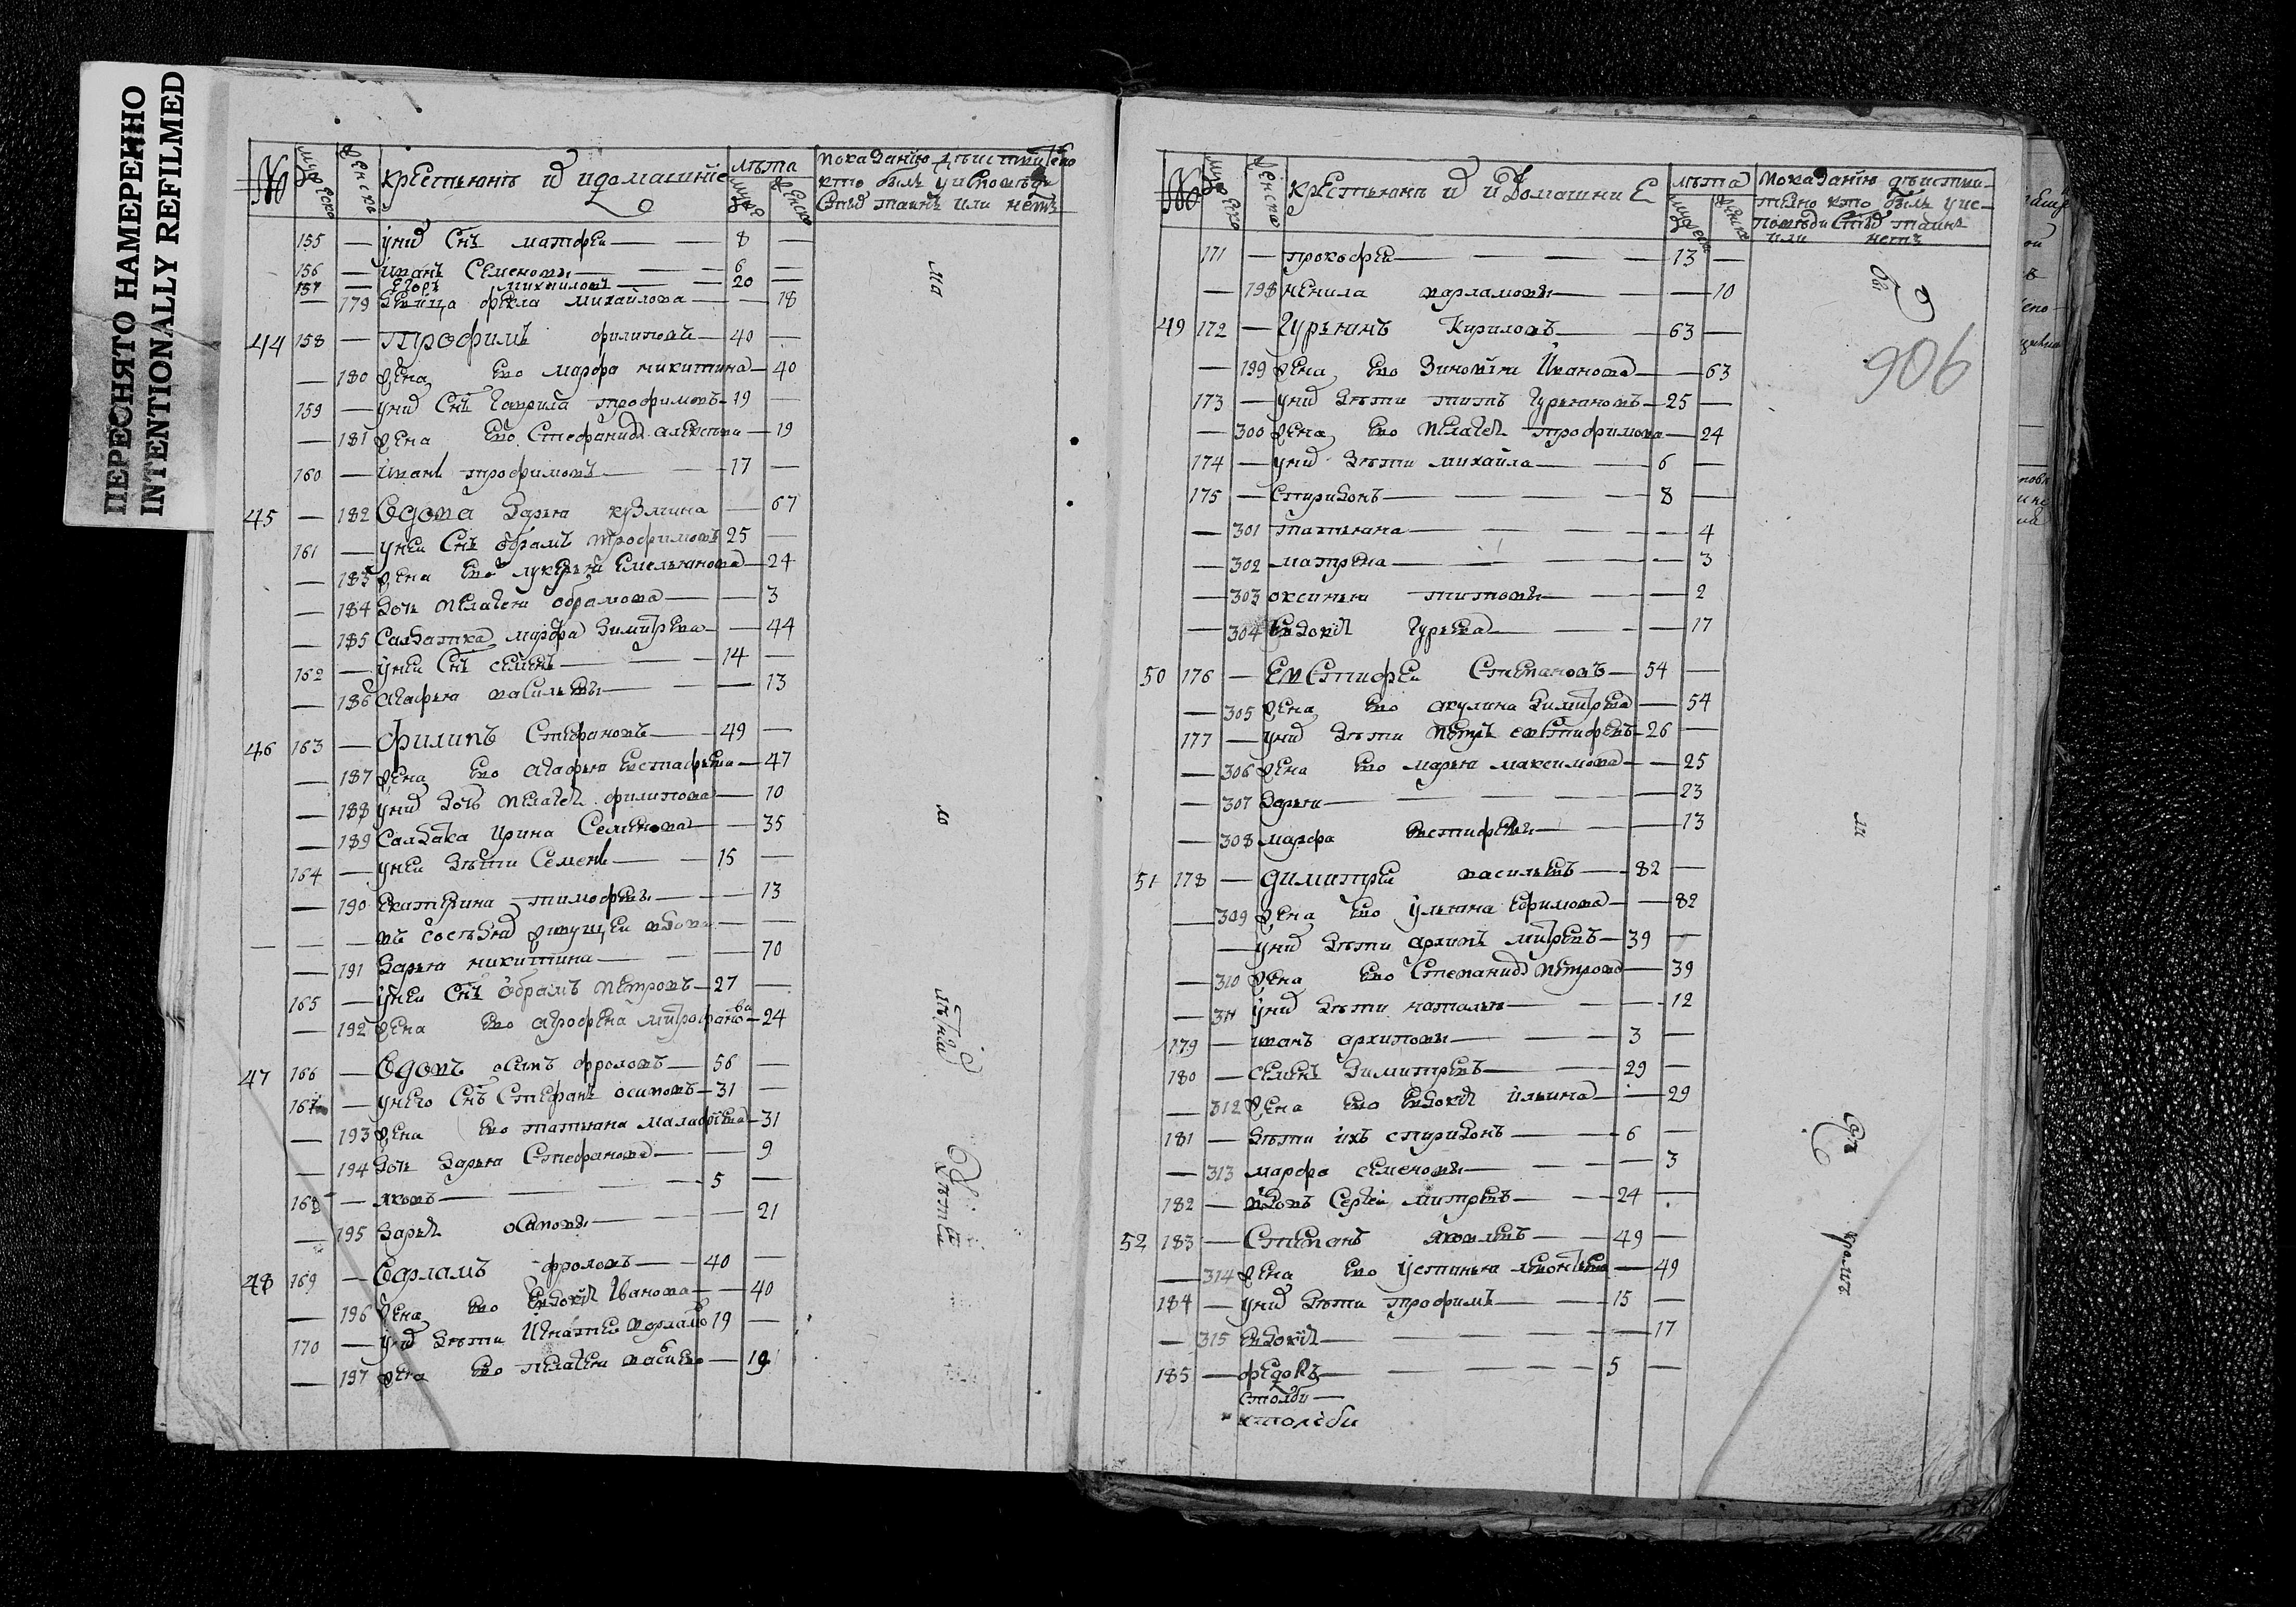 ПЕРЕСНЯТО НАМЕРЕННО
INTENTIONALLY REFILMED
№ мужеска женска крестьянъ и идомашние лѣта мужес женск показанию дѣиствително
кто былъ уисповѣди
стых таинъ или нетъ
155 — уних снъ матфеи — 8 —
156 — иванъ семеновы — 6 —
157 — егоръ михаиловъ — 20 —
— 179 фекла михайлова — 18
44 158 — трофимъ филиповъ — 40 —
— 180 жена ево марфа никитина — 40
159 — уних снъ гаврила трофимовъ — 19 —
— 181 жена ево стефанида алексеева — 19
160 — иванъ трофимовъ — 17 —
45 — 182 вдова дарья кузмина — 67
161 — унеи снъ обрамъ трофимовъ 25 —
— 183 жена ево лукерья емельянова — 24
— 184 дочь пелагея обрамова — 3
— 185 салдатка марфа димитрева — 44
162 — унеи снъ семенъ — 14 —
— 186 агафья васильевы — 13
46 163 — филипъ стефановъ — 49 —
— 187 жена ево агафья евстафьева — 47
— 188 уних дочь пелагея филипова — 10
— 189 салдатка ирина семенова — 35
164 — унеи дѣти семенъ — 15 —
— 190 екатерина тимофеевы — 13
— — — въ соседях живущеи вдова — —
— 191 дарья никитина — 70
165 — унеи снъ обрамъ петровъ — 27 —
— 192 жена ево агрофена митрофанова — 24
47 166 — вдовъ осипъ фроловъ — 56 —
167 — унего снъ стефанъ осиповъ — 31 —
— 193 жена ево татьяна малафеева — 31
— 194 дочь дарья стефанова — 9
168 — яковъ — 5 —
— 195 дарья осиповы — 21
48 169 — варламъ фроловъ — 40 —
— 196 жена ево евдокия иванова — 40
170 — уних дѣти игнатеи варламо 19 —
— 197 жена ево пелагея василева — 19
№ мужеско женско крестьянъ и идомашние лѣта мужеска женска показанию дѣистви-
телно кто былъ уис-
поведи стых таинъ
или нетъ
171 — прокофеи — 13 —
— 198 ненила варламовы — 10
906
49 172 — гурьянъ кириловъ — 63 —
— 199 жена ево зиновия иванова — 63
173 — уних дѣти титъ гурьяновъ — 25 —
— 300 жена ево пелагея трофимова — 24
174 — уних дѣти михаила — 6 —
175 — спиридонъ — 8 —
— 301 татьяна — 4
— 302 матрена — 3
— 303 оксинья титовы — 2
— 304 евдокия гурьева — 17
50 176 — евстифеи степановъ — 54 —
— 305 жена ево акулина димитрева — 54
177 — уних дѣти петръ евстифеевъ — 26 —
— 306 жена ево марья максимова — 25
— 307 дарья — 23
— 308 марфа евстифеевы — 13
51 178 — димитреи васильевъ — 82 —
— 309 жена ево ульяна ефимова — 82
— уних дѣти архипъ митревъ — 39 —
— 310 жена ево степанида петрова — 39
— 311 уних дѣти наталья — 12
179 — иванъ архиповы — 3 —
180 — семенъ димитревъ — 29 —
— 312 жена ево евдокия ильина — 29
181 — дѣти ихъ спиридонъ — 6 —
— 313 марфа семеновы — 3
182 — вдовъ сергеи митревъ — 24 —
52 183 — степанъ яковлевъ — 49 —
— 314 жена ево устинья леонтьева — 49
184 — уних дѣти трофимъ — 15 —
— 315 евдокия — 17
185 — федоръ — 5 —